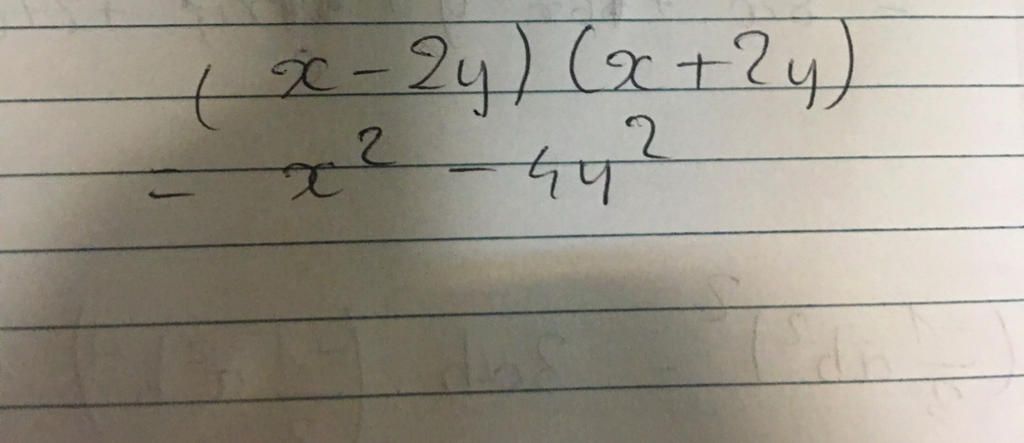 (x-2y)(x+2y)
= x² - 4y²